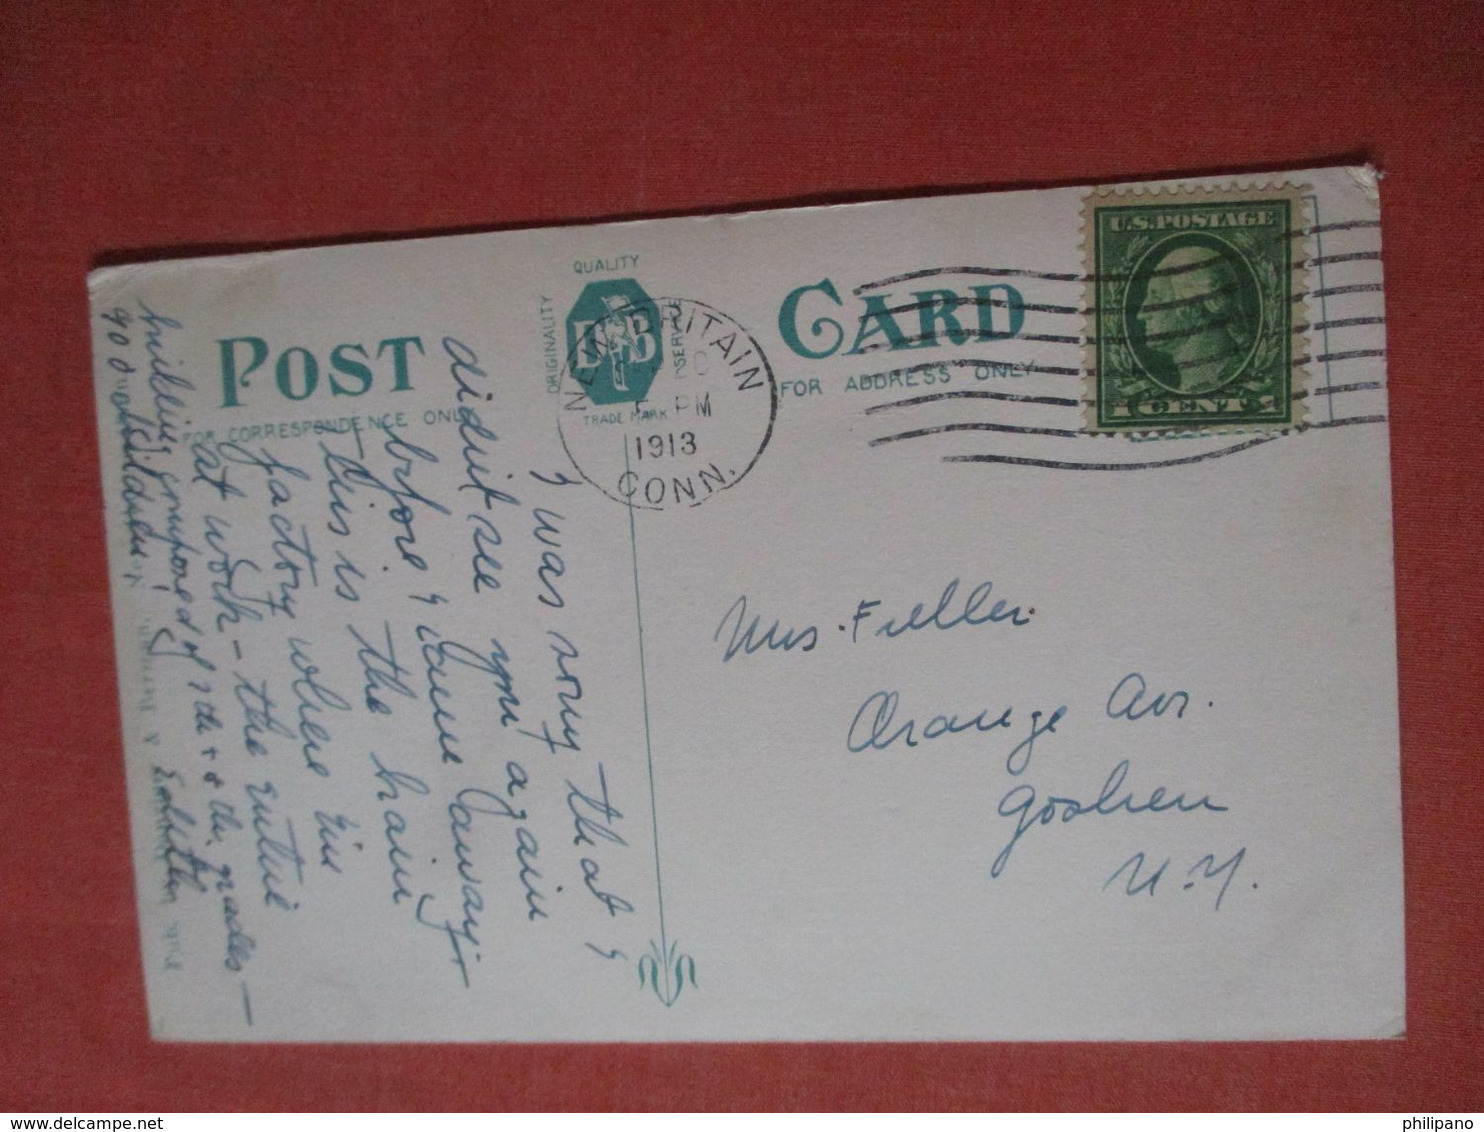 POST CARD
FOR CORRESPONDENCE ONLY
FOR ADDRESS ONLY
QUALITY
ORIGINALITY
SERVICE
TRADE MARK
NEW BRITAIN
PM
1913
CONN.
U.S. POSTAGE
1 CENT 1
I was sorry that I
didn't see you again
before I came away.
This is the main
factory where I'm
at work - the entire
building composed of 7th + 8th grades -
90 children.
Mrs. Fuller.
Orange Ave.
Goshen
N.Y.
philipano
delcampe.net